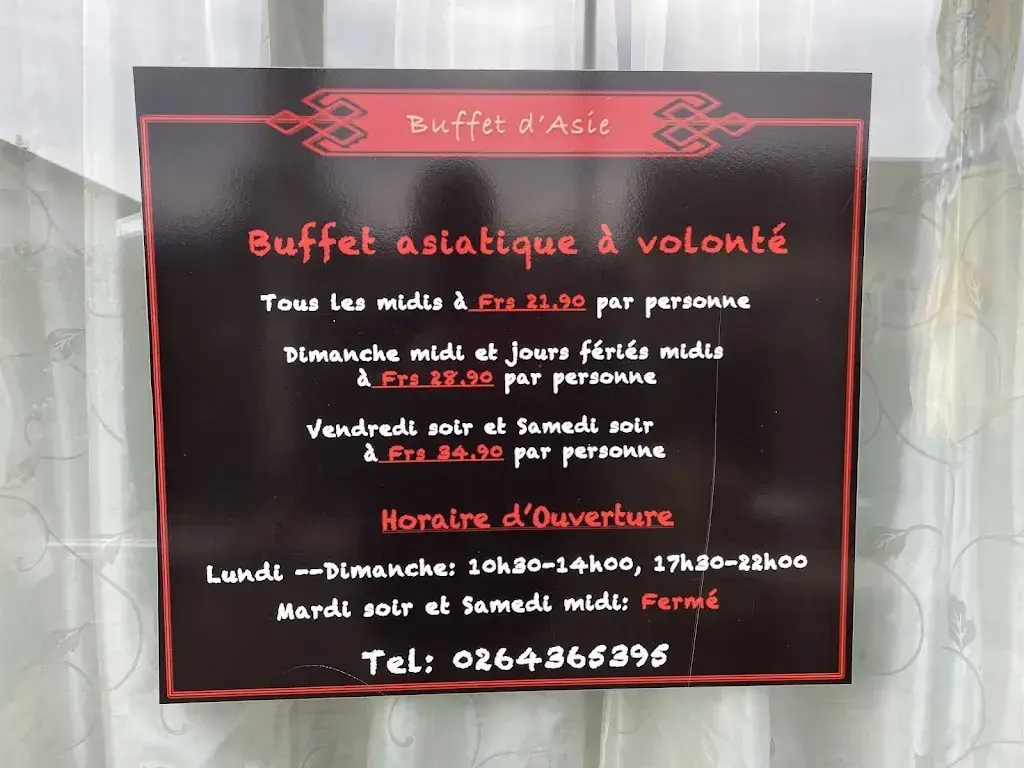 Buffet d'Asie
Buffet asiatique à volonté
Tous les midis à Frs 21.90 par personne
Dimanche midi et jours fériés midis
à Frs 28.90 par personne
Vendredi soir et Samedi soir
à Frs 34.90 par personne
Horaire d'Ouverture
Lundi --Dimanche: 10h30-14h00, 17h30-22h00
Mardi soir et Samedi midi: Fermé
Tel: 0264365395